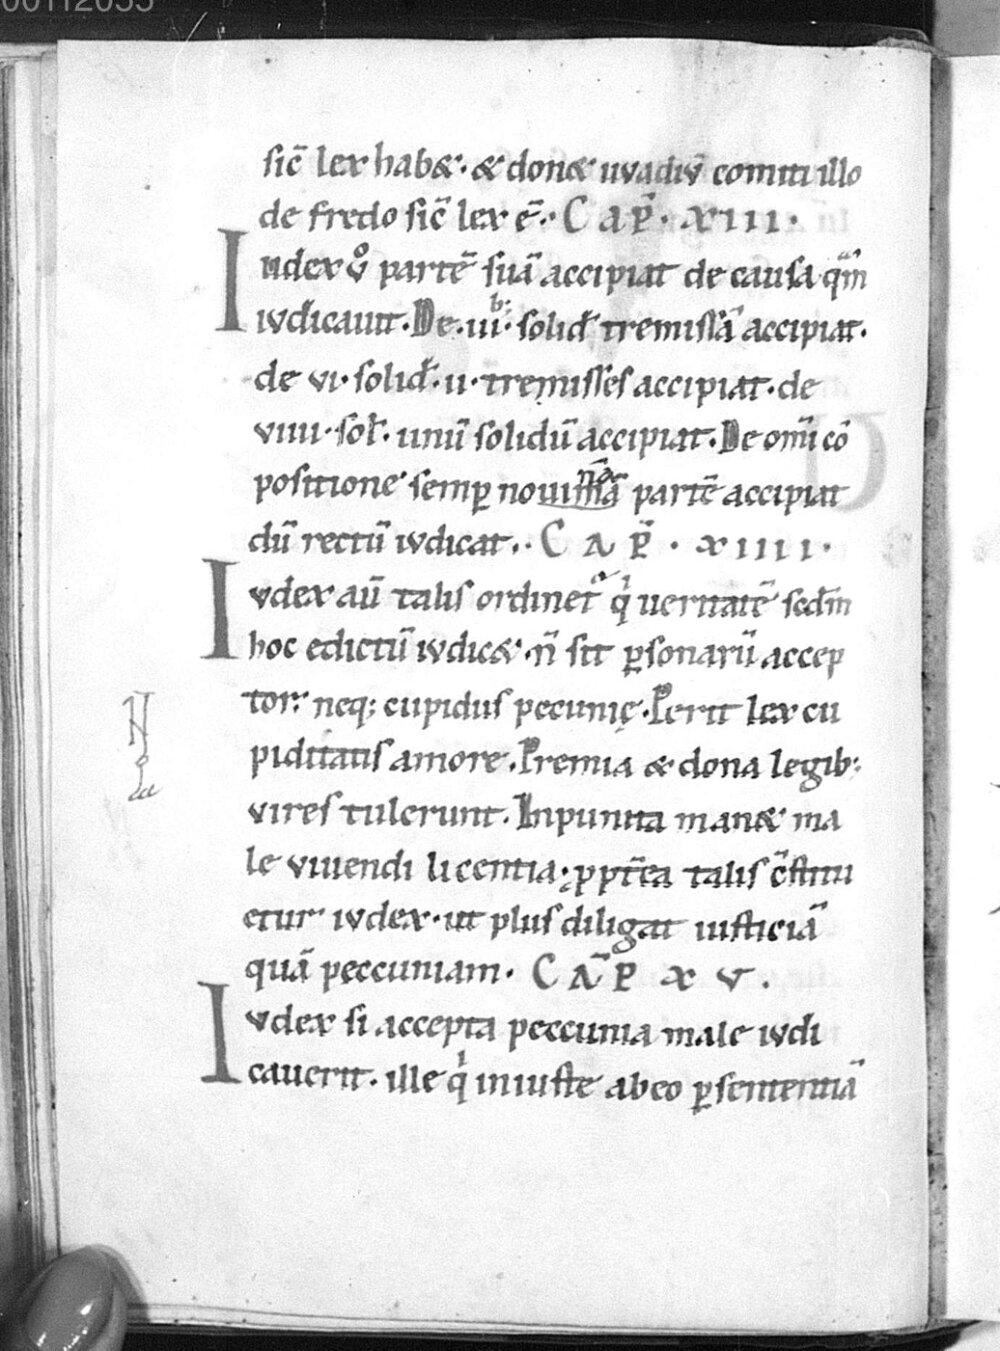 00112055
sic̄ lex habet· & donet uuadiū comiti illo
de fredo sic̄ lex ē·· CAP̄· XIII·
Iudex v̊ partē suā accipiat de causa qm̄
iudicauit· De· iiib;· solid̄ tremissā accipiat·
de vi· solid̄· ii· tremisses accipiat· de
viiii· sol̄· unū solidū accipiat· De om̄i cō
positione semp̱ nouimā partē accipiat
nā
dū rectū iudicat·· CAP̄· XIIII·
Iudex aū talis ordinet̄ q̇ ueritatē scdm̄
hoc edictū iudicet· n̄ sit p̱sonarū accep
tor· neq; cupidus pecunię· Perit lex cu
piditatis amore· Premia & dona legib;
uires tulerunt· Inpunita manet ma
le viuendi licentia· ꝓpt̄ea talis c̄stitu
etur iudex· ut plus diligat iusticiā
quā peccuniam· CAP̄ XV·
Iudex si accepta peccunia male iudi
cauerit· ille q̇ iniuste ab eo p̱ sententiā